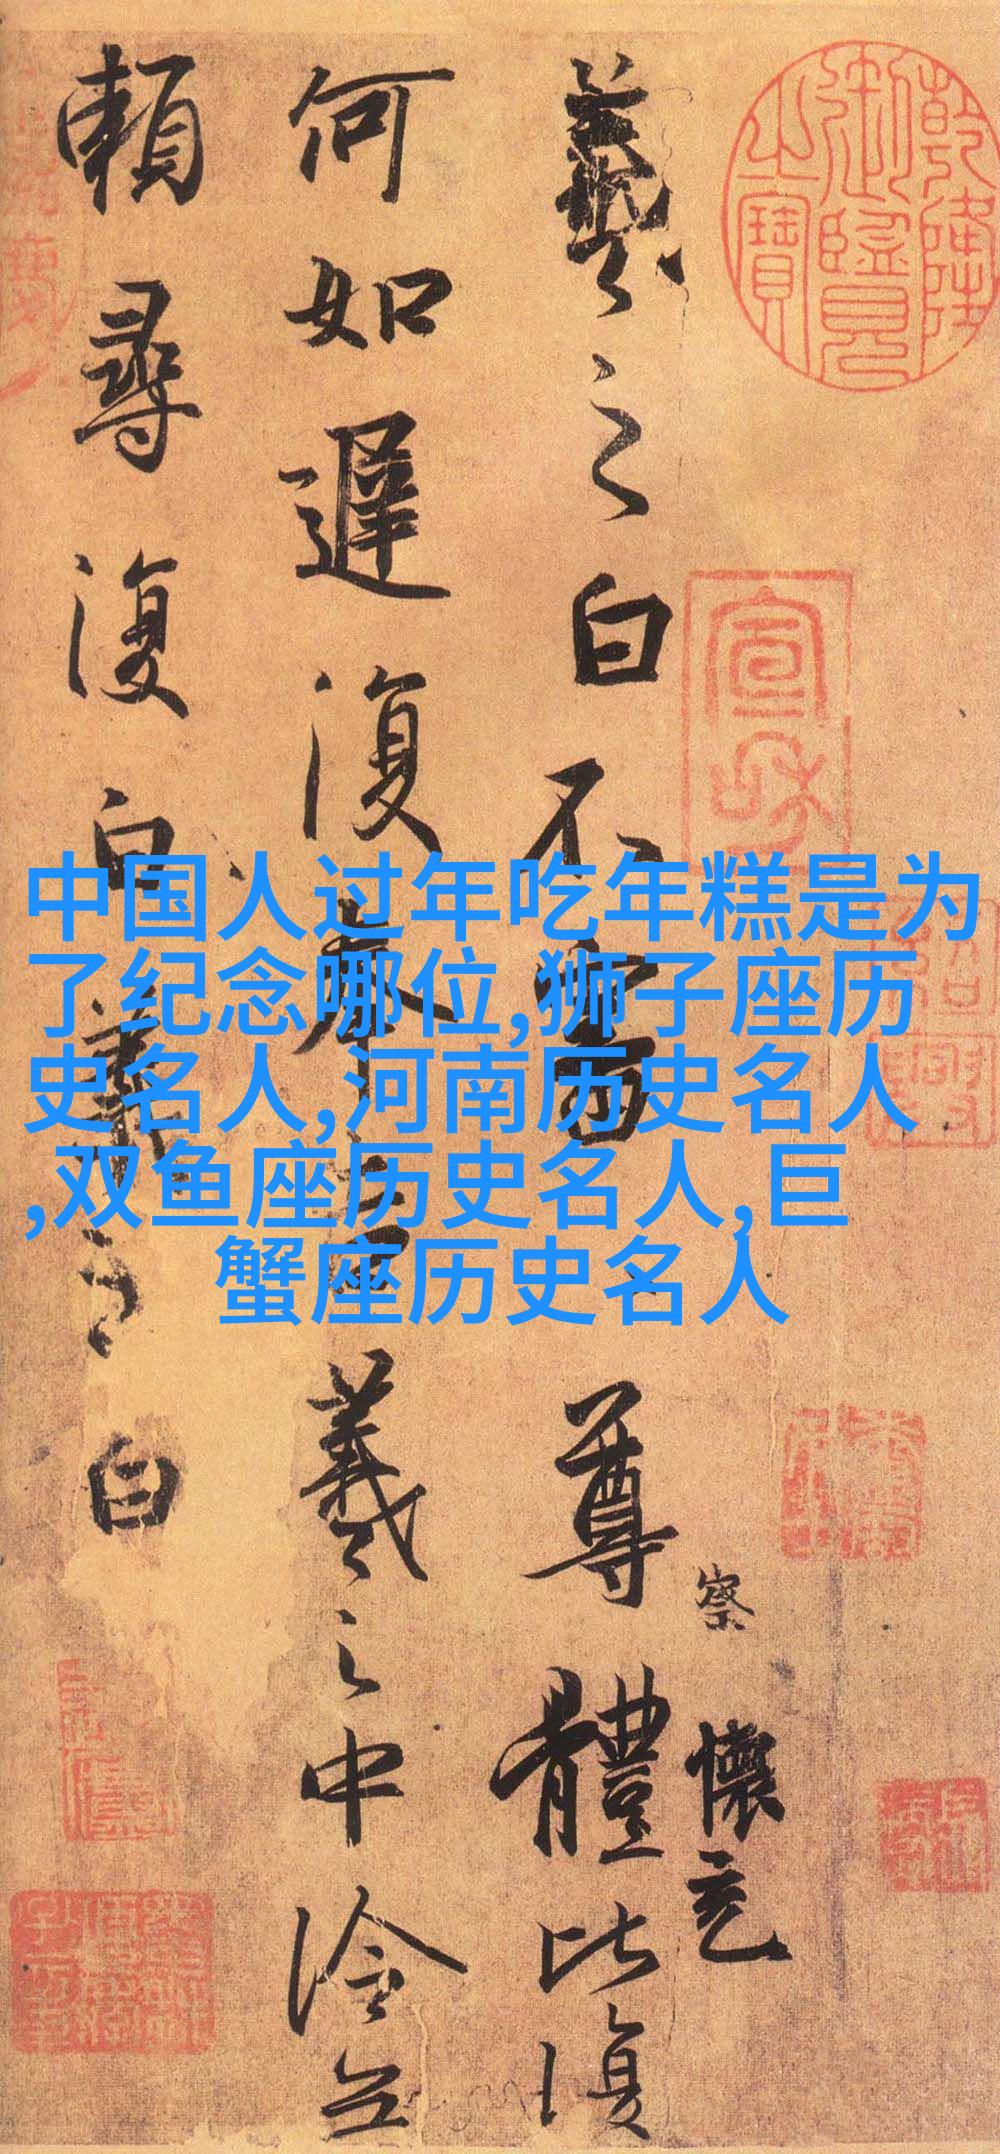 中国人过年吃年糕是为
了纪念哪位,狮子座历
史名人,河南历史名人
,双鱼座历史名人,巨
蟹座历史名人
乾隆御覽之寶
宣和
察
懷充
羲之白不審尊體比復
何如遲復奉告羲之中冷無
賴尋復白羲之白